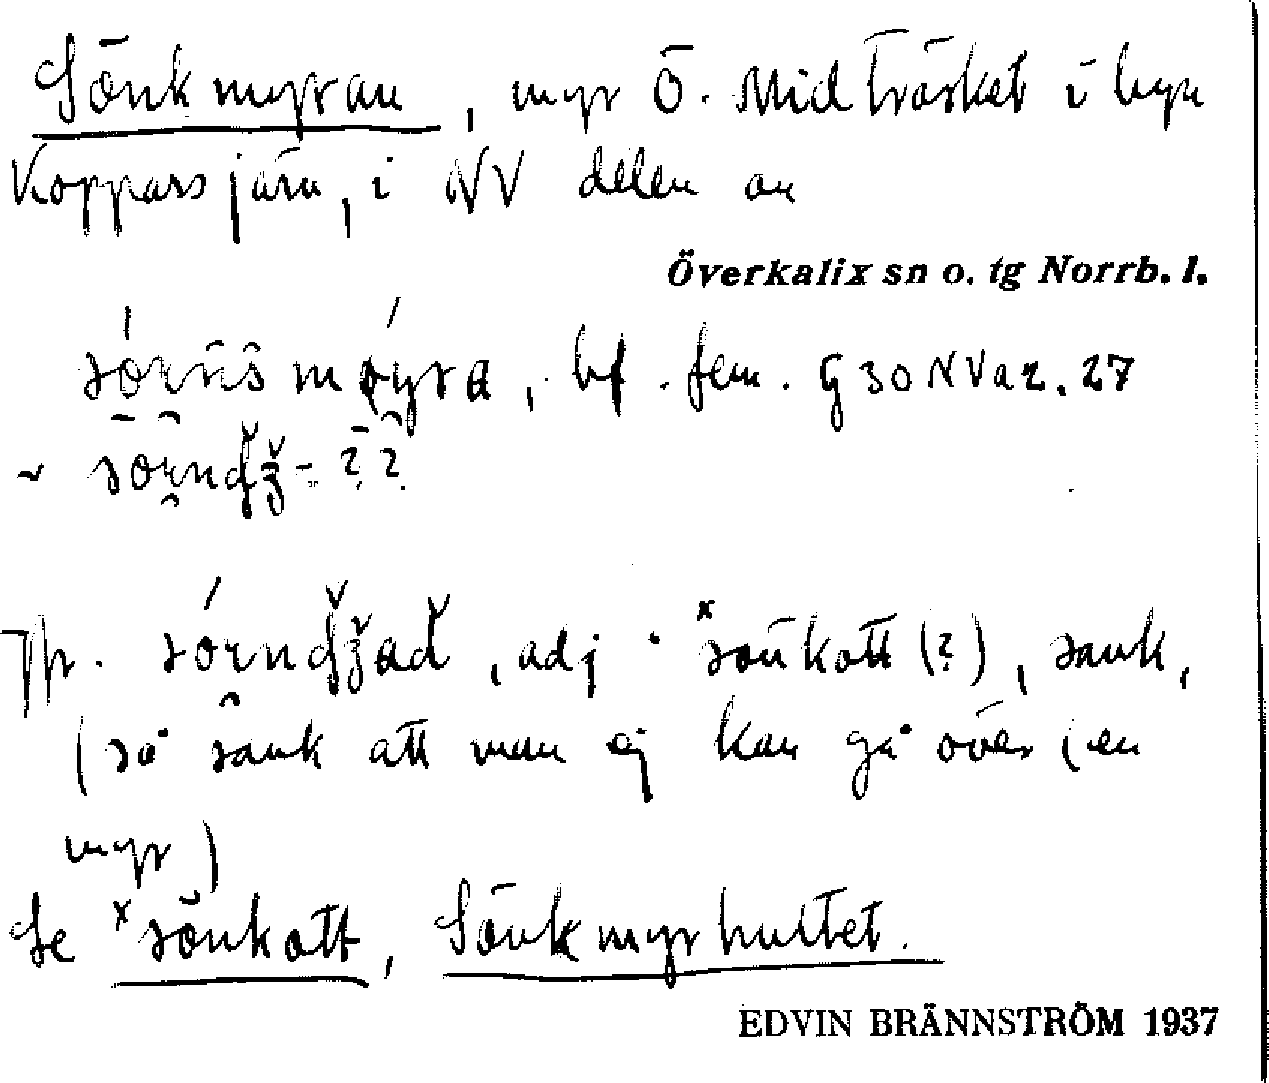 Sänkmyran, myr Ö. Midträsket i byn
Kopparsjärn, i NV delen av
Överkalix sn o. tg Norrb. l.
bf. fem. G30NVa2.27
~
Jfr. adj. *sönkott (?), sank,
(så sank att man ej kan gå över (en
myr)
Se *sönkott, Sänkmyrhultet.
EDVIN BRÄNNSTRÖM 1937